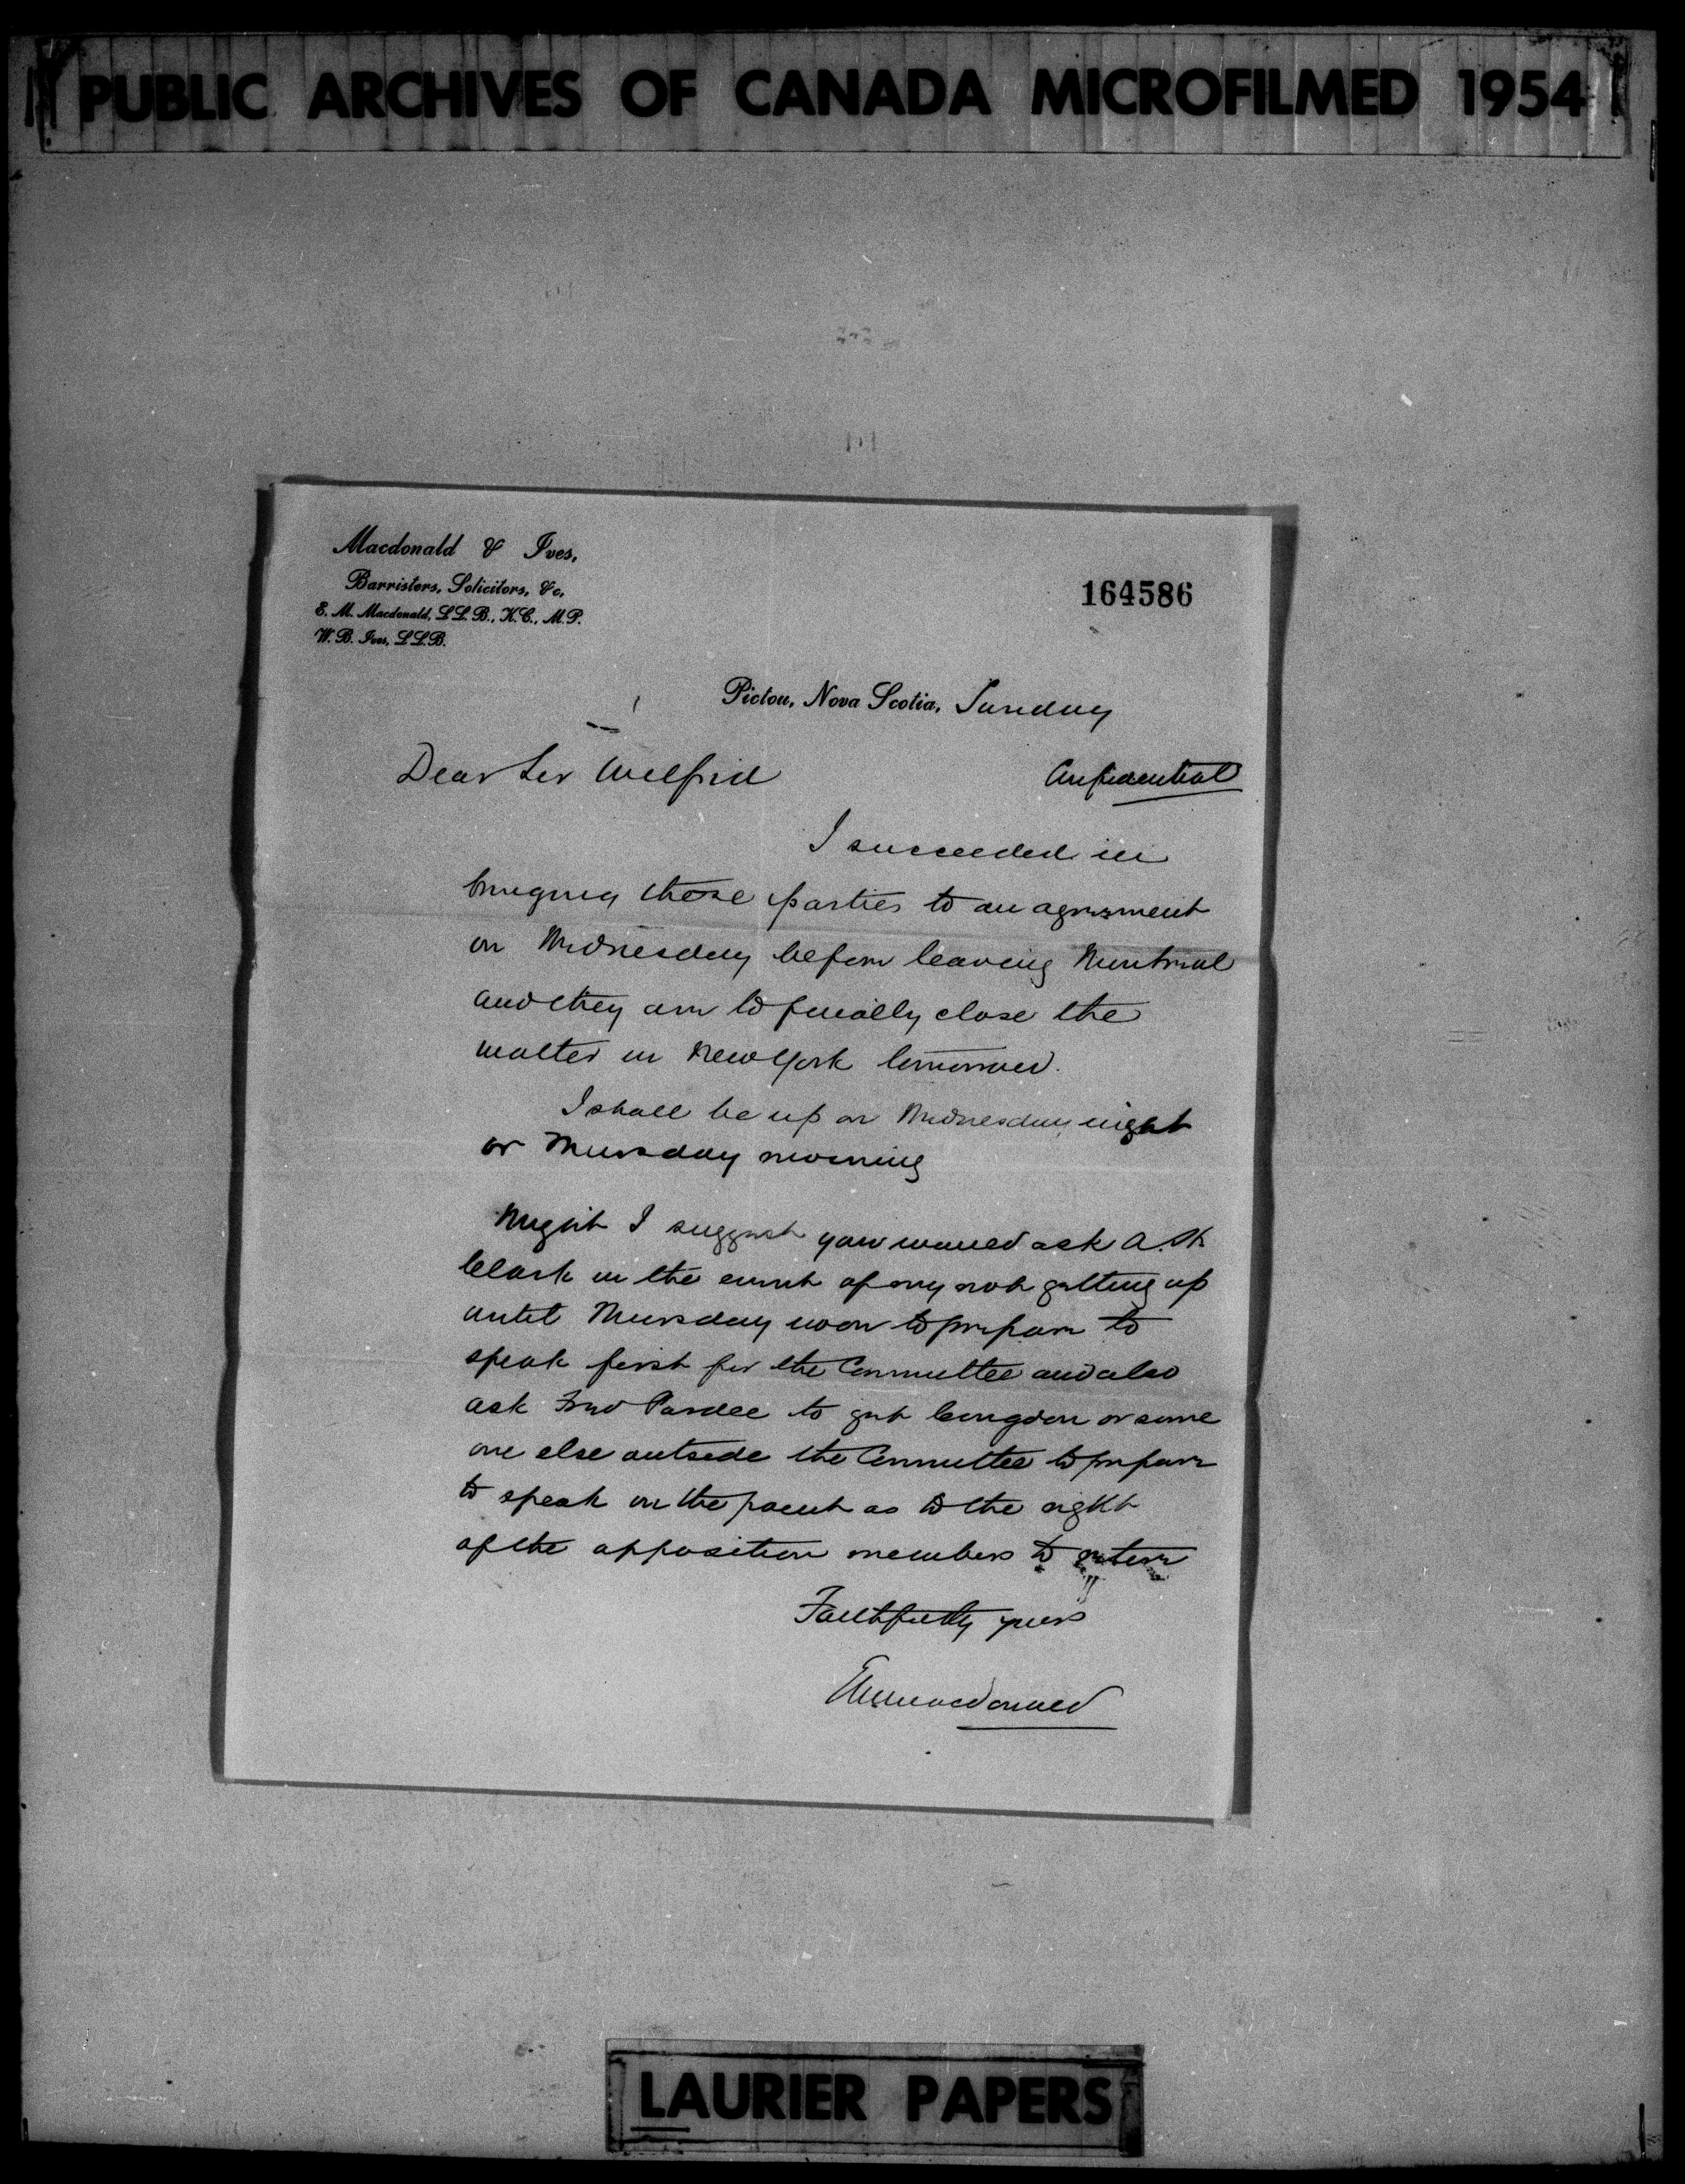 PUBLIC ARCHIVES OF CANADA MICROFILMED 1954
Macdonald & Ives,
Barristers, Solicitors, &c.
E. M. Macdonald, LL.B., K.C., M.P.
W. B. Ives, LL.B.
164586
Pictou, Nova Scotia, Sunday
Dear Sir Wilfrid
Confidential
I succeeded in
bringing these parties to an agreement
on Wednesday before leaving Montreal
and they are to finally close the
matter in New York tomorrow.
I shall be up on Wednesday night
or Thursday morning
Might I suggest you would ask A. K
Clark in the event of my not getting up
until Thursday noon to prepare to
speak first for the Committee and also
ask Fred Pardee to get Congdon or some
one else outside the Committee to prepare
to speak on the point as to the right
of the opposition members to
Faithfully yours
EMMacdonald
LAURIER PAPERS